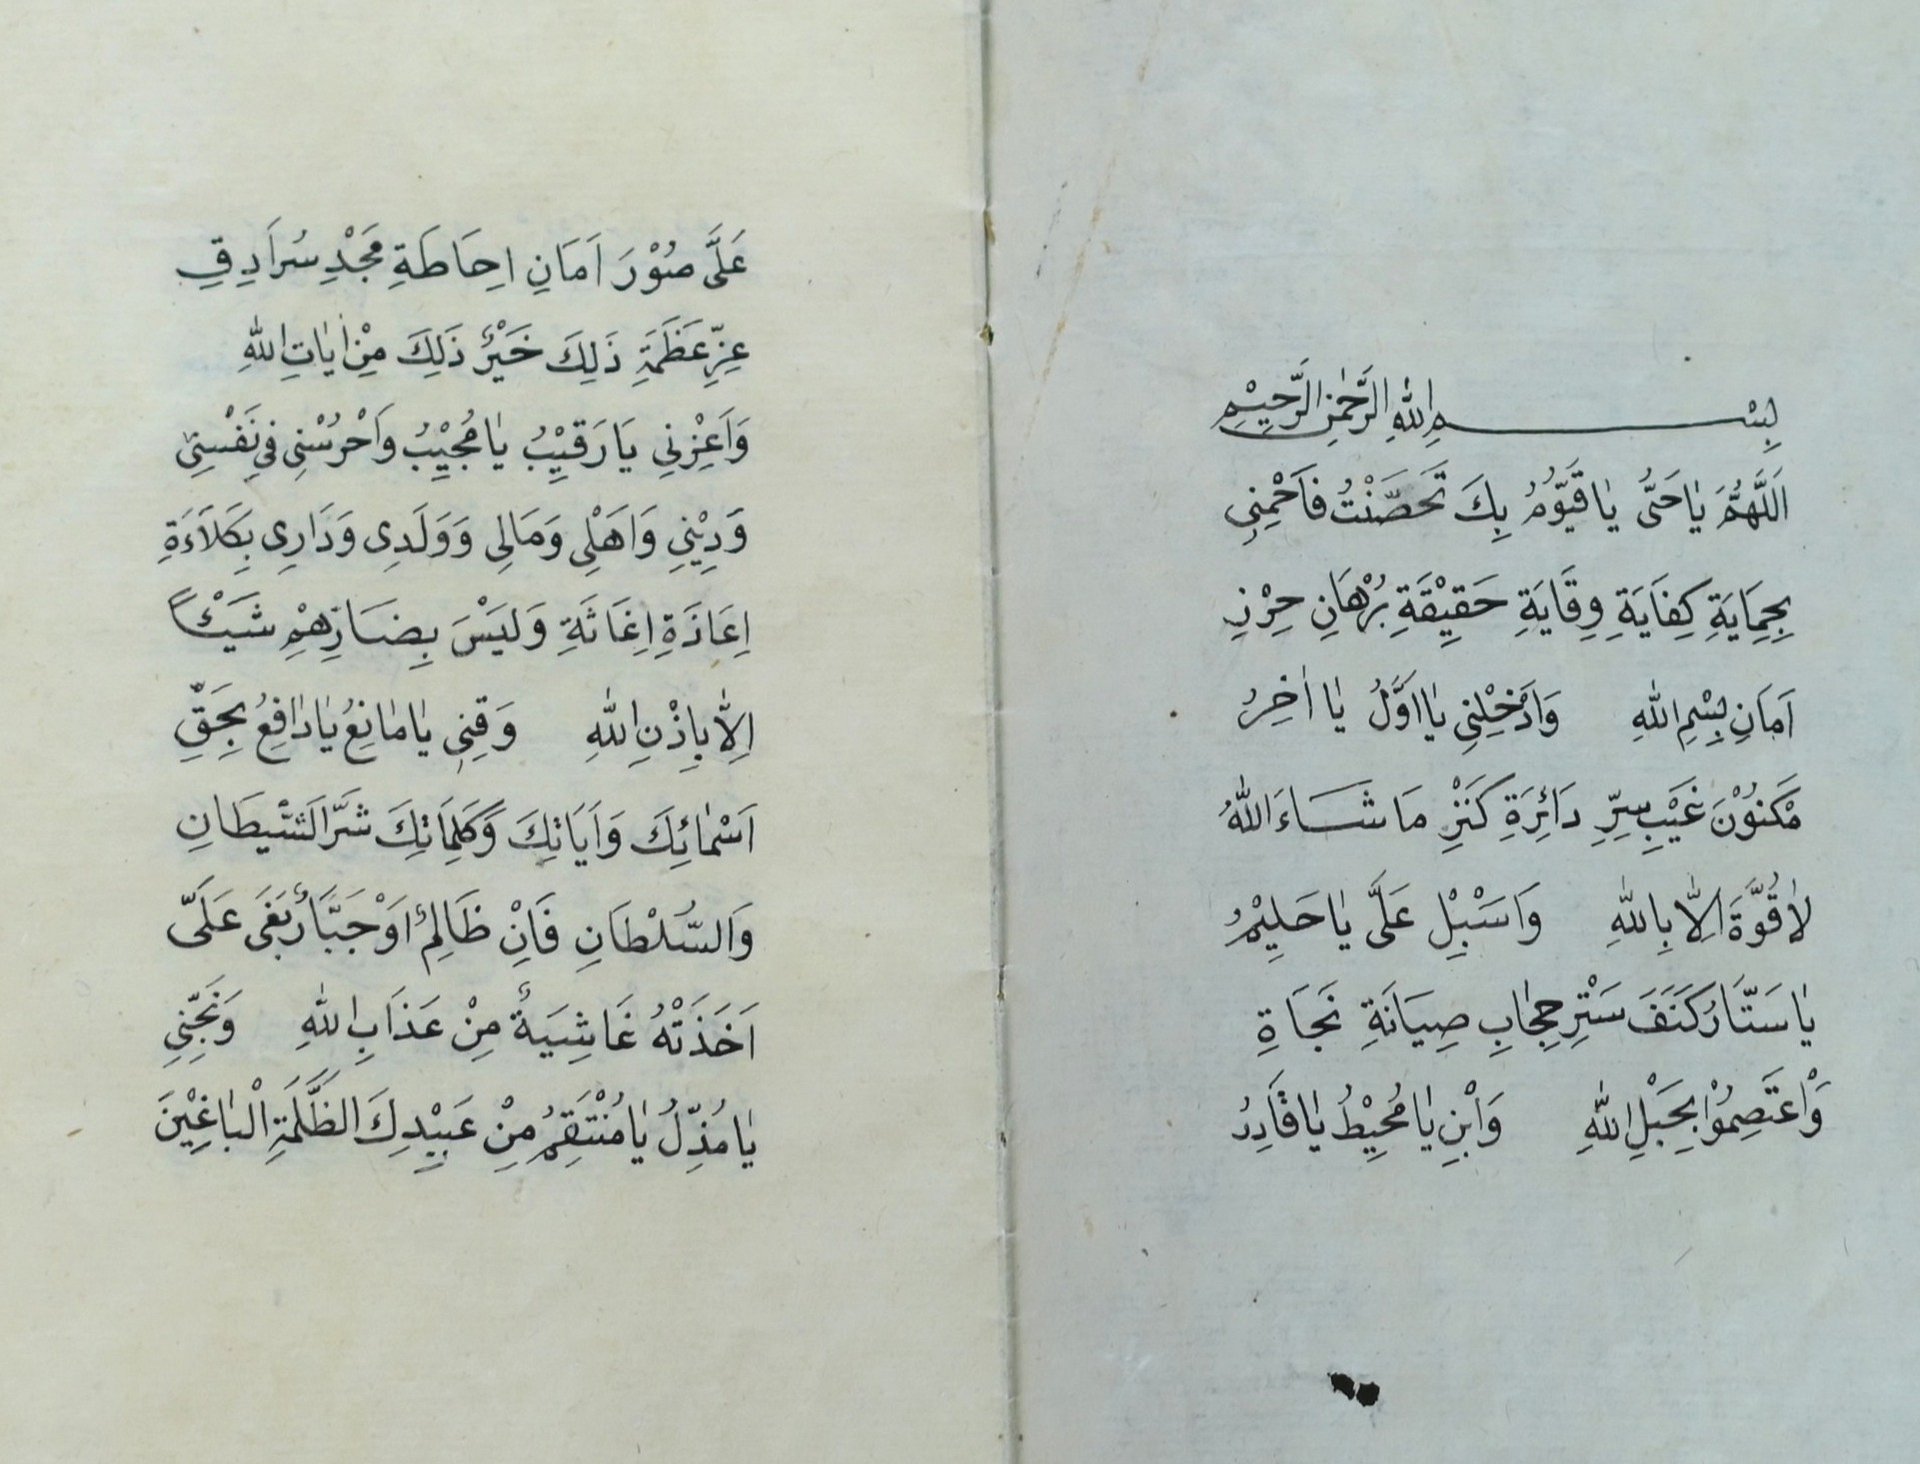 بِسْمِ اللهِ الرَّحْمٰنِ الرَّحِيْمِ
اَللَّهُمَّ يَا حَىُّ يَا قَيُّوْمُ بِكَ تَحَصَّنْتُ فَاحْمِنِى
بِحِمَايَةِ كِفَايَةِ وِقَايَةِ حَقِيْقَةِ بُرْهَانِ حِرْزِ
اَمَانِ بِسْمِ اللهِ وَاَدْخِلْنِى يَا اَوَّلُ يَا اٰخِرُ
مَكْنُوْنَ غَيْبِ سِرِّ دَائِرَةِ كَنْزِ مَا شَاءَ اللهُ
لَا قُوَّةَ اِلَّا بِاللهِ وَاَسْبِلْ عَلَىَّ يَا حَلِيْمُ
يَا سَتَّارُ كَنَفَ سَتْرِ حِجَابِ صِيَانَةِ نَجَاةِ
وَاعْتَصِمُوْا بِحَبْلِ اللهِ وَابْنِ يَا مُحِيْطُ يَا قَادِرُ
عَلَىَّ صُوْرَ اَمَانِ اِحَاطَةِ مَجْدِ سُرَادِقِ
عِزِّ عَظَمَةِ ذَلِكَ خَيْرٌ ذَلِكَ مِنْ اٰيَاتِ اللهِ
وَاَعِزْنِي يَا رَقِيْبُ يَا مُجِيْبُ وَاَحْرُسْنِى فِي نَفْسِىْ
وَدِيْنِي وَاَهْلِى وَمَالِى وَوَلَدِى وَدَارِى بِكَلَاءَةِ
اِعَاذَةِ اِغَاثَةِ وَلَيْسَ بِضَارِّهِمْ شَيْئًا
اِلَّا بِاِذْنِ اللهِ وَقِنِى يَا مَانِعُ يَا دَافِعُ بِحَقِّ
اَسْمَائِكَ وَاَيَاتِكَ وَكَلِمَاتِكَ شَرَّ الشَّيْطَانِ
وَالسُّلْطَانِ فَاِنْ ظَالِمٌ اَوْ جَبَّارٌ بَغَى عَلَىَّ
اَخَذَتْهُ غَاشِيَةٌ مِنْ عَذَابِ اللهِ وَنَجِّنِي
يَا مُذِلُّ يَا مُنْتَقِمُ مِنْ عَبِيْدِكَ الظَّلَمَةِ الْبَاغِيْنَ